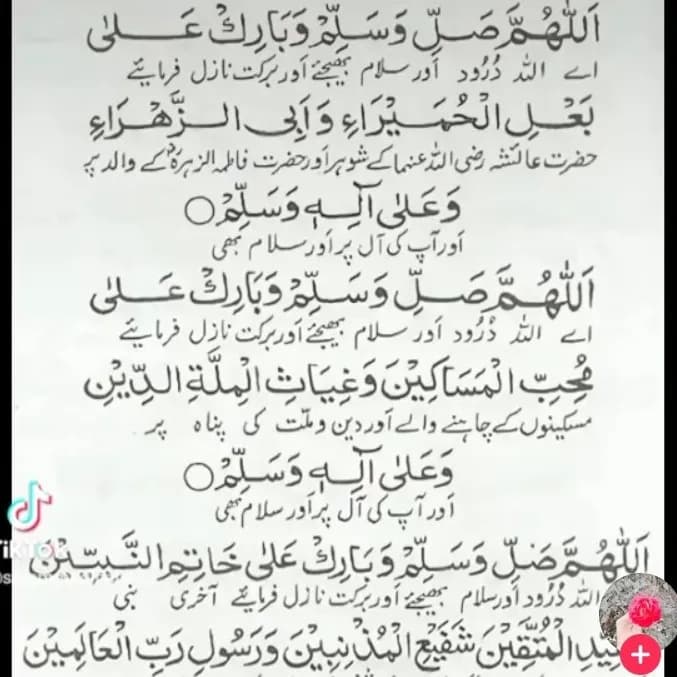 اَللّٰهُمَّ صَلِّ وَسَلِّمْ وَبَارِكْ عَلٰى
اے اللہ دُرُود اَور سلام بھیجئے اَور برکت نازل فرمایئے
بَعْلِ الْحُمَيْرَاءِ وَاَبِى الزَّهْرَاءِ
حضرت عائشہ رضی اللہ عنہما کے شوہر اَور حضرت فاطمہ الزہرہ کے والد پر
وَعَلٰى آلِهٖ وَسَلِّمْ ○
اَور آپ کی آل پر اَور سلام بھی
اَللّٰهُمَّ صَلِّ وَسَلِّمْ وَبَارِكْ عَلٰى
اے اللہ دُرُود اَور سلام بھیجئے اَور برکت نازل فرمایئے
مُحِبِّ الْمَسَاكِيْنَ وَغِيَاثِ الْمِلَّةِ الدِّيْنِ
مسکینوں کے چاہنے والے اَور دین و ملّت کی پناہ پر
وَعَلٰى آلِهٖ وَسَلِّمْ ○
اَور آپ کی آل پر اَور سلام بھی
اَللّٰهُمَّ صَلِّ وَسَلِّمْ وَبَارِكْ عَلٰى خَاتِمِ النَّبِيّٖنَ
اللہ دُرُود اَور سلام بھیجئے اَور برکت نازل فرمایئے آخری نبی
الْمُتَّقِيْنَ شَفِيْعِ الْمُذْنِبِيْنَ وَرَسُولِ رَبِّ الْعَالَمِيْنَ
TikTok